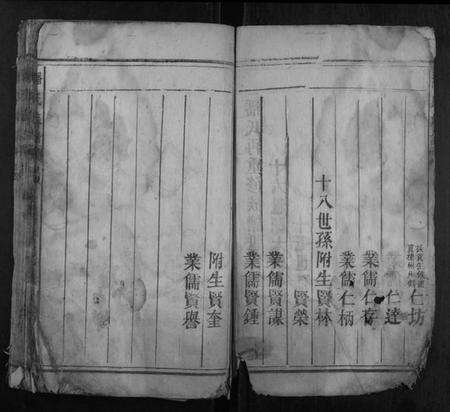 仁坊
仁達
業儒仁存
業儒仁柄
十八世孫附生賢林
賢榮
業儒賢謀
業儒賢鍾
附生賢奎
業儒賢譽